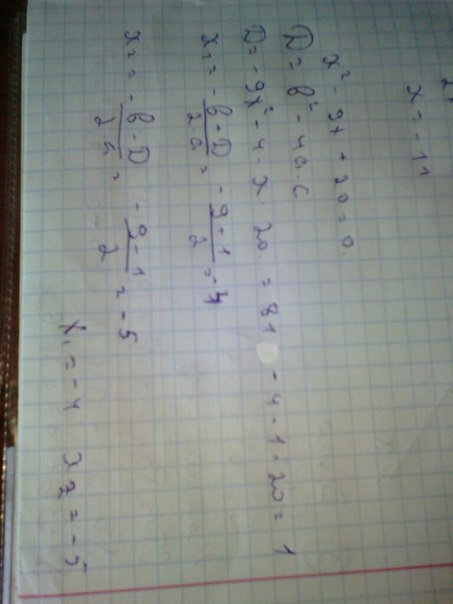 2)
x = -11
x² - 9x + 20 = 0.
D = b² - 4a·c
D = -9x² - 4 · x 20 = 81 - 4 · 1 · 20 = 1
x₁ = -b-D / 2·a = -9+1 / 2 = -4
x₂ = -b-D / 2·a = -9-1 / 2 = -5
x₁ = -4 x₂ = -5